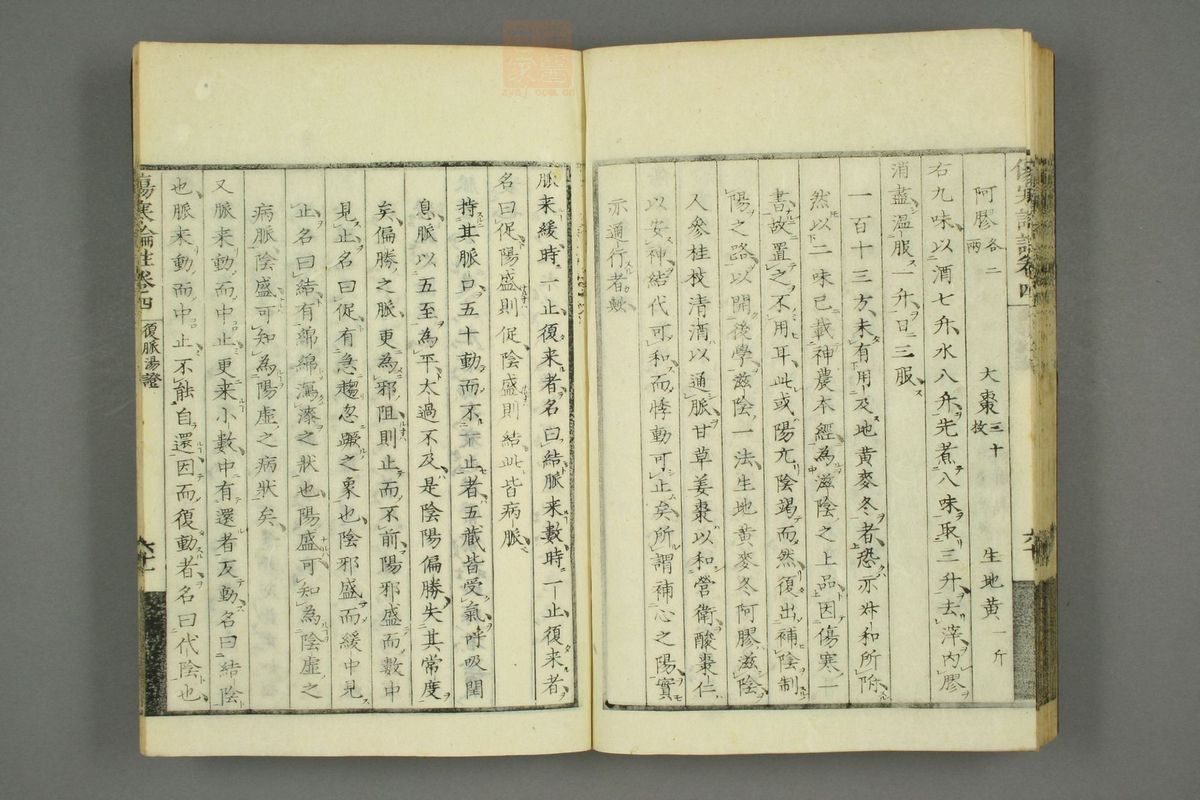 阿膠各二兩 大棗三十枚 生地黄一斤
右九味以酒七升水八升先煮八味取三升去滓內膠
消盡温服一升日三服
一百十三方未有用及地黄麥冬者恐亦叔和所附
然以二味已載神農本經為滋陰之上品因傷寒一
書故置之不用耳此或陽亢陰竭而然復出補陰制
陽之路以開後學滋陰一法生地黄麥冬阿膠滋陰
人參桂枝清酒以通脈甘草姜棗以和營衛酸棗仁
以安神結代可和而悸動可止矣所謂補心之陽實
亦通行者歟
脈来緩時一止復来者名曰結脈来數時一止復来者
名曰促陽盛則促陰盛則結此皆病脈
持其脈口五十動而不一止者五藏皆受氣呼吸閏
息脈以五至為平太過不及是陰陽偏勝失其常度
矣偏勝之脈更為邪阻則止而不前陽邪盛而數中
見止名曰促有急趨忽蹶之象也陰邪盛而緩中見
止名曰結有綿綿瀉漆之狀也陽盛可知為陰虛之
病脈陰盛可知為陽虛之病狀矣
又脈来動而中止更来小數中有還者反動名曰結陰
也脈来動而中止不能自還因而復動者名曰代陰也
傷寒論註卷四 復脈湯證 六十一